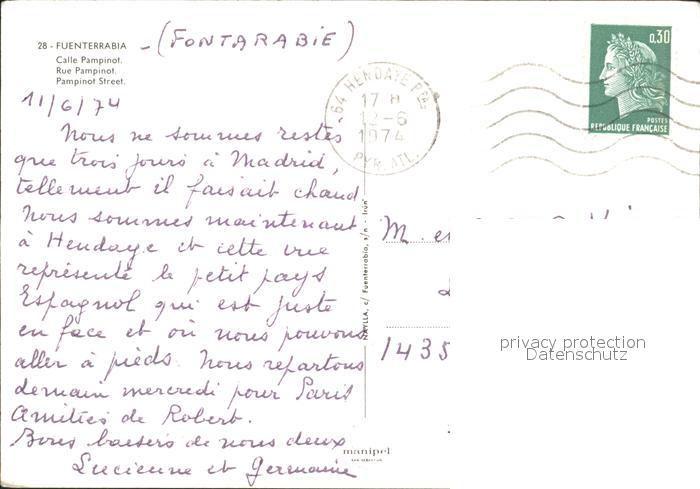 28 - FUENTERRABIA - (FONTARABIE)
Calle Pampinot.
Rue Pampinot.
Pampinot Street.
11/6/74
Nous ne sommes restés
que trois jours à Madrid,
tellement il faisait chaud
Nous sommes maintenant
à Hendaye et cette vue
représente le petit pays
Espagnol qui est juste
en face et où nous pouvons
aller à pieds. Nous repartons
demain mercredi pour Paris
Amitiés de Robert.
Bons baisers de nous deux
Lucienne et Germaine
64 HENDAYE Ppal
17 H
12-6
1974
PYR. ATL.
0,30
POSTES
REPUBLIQUE FRANÇAISE
NAYLLA, c/ Fuenterrabia, s/n - Irún
manipel
SAN SEBASTIAN
M. et
1435
privacy protection
Datenschutz